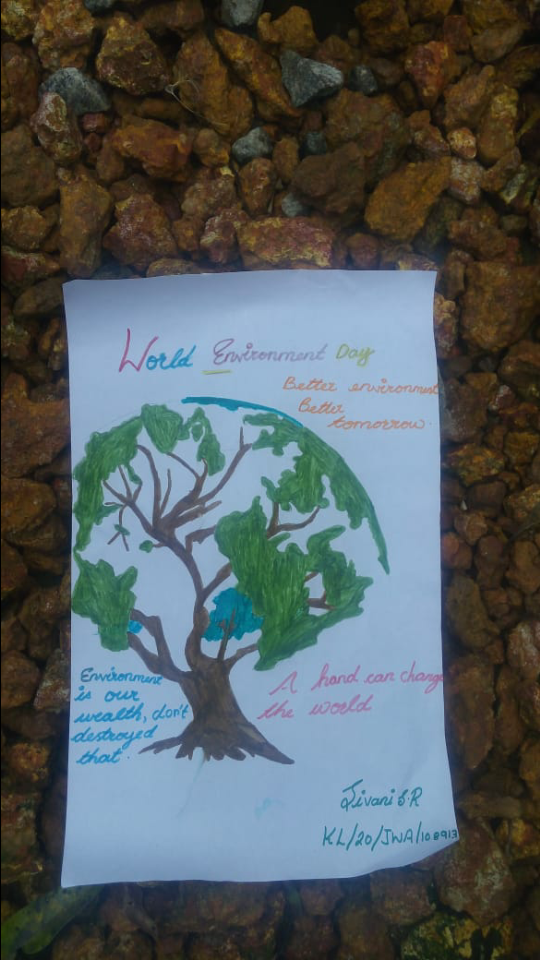 World Environment Day
Better environment
Better
tomorrow.
Environment
is our
wealth, don't
destroyed
that.
A hand can change
the world
Jivani S.R
KL/20/JWA/108913